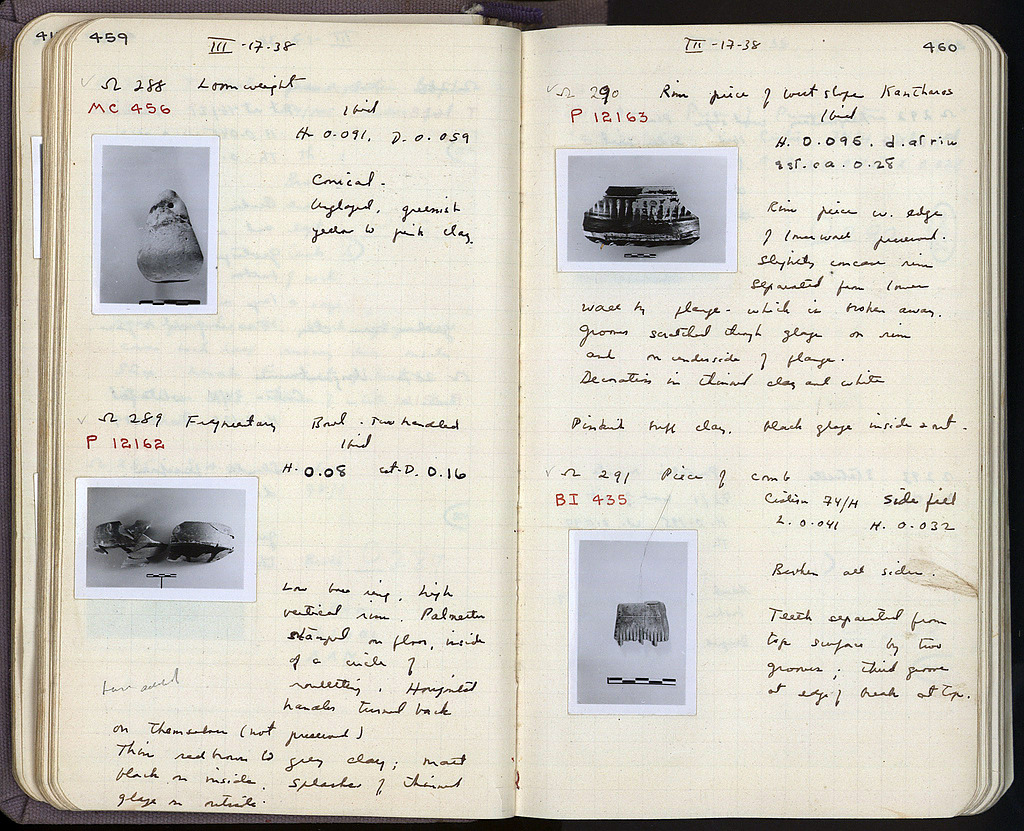 459
III -17-38
Ω 288 Loomweight
MC 456
Ibid
H. 0.091, D. 0.059
Conical.
Unglazed, greenish
yellow to pink clay.
Ω 289 Fragmentary Bowl - Two handled
P 12162
Ibid
H. 0.08 est. D. 0.16
Low base ring, high
vertical rim. Palmettes
stamped on floor, inside
of a circle of
rouletting. Horizontal
handles turned back
on themselves (not preserved)
Thin red brown to grey clay; matt
black on inside, splashes of thinned
glaze on outside.
III -17-38
460
Ω 290 Rim piece of West slope Kantharos
P 12163
Ibid
H. 0.095. d. at rim
est. ca. 0.28
Rim piece w. edge
of lower wall preserved.
Slightly concave rim
separated from lower
wall by flange - which is broken away.
Grooves scratched through glaze on rim
and on underside of flange.
Decoration in thinned clay and white
Pinkish buff clay, black glaze inside & out.
Ω 291 Piece of comb
BI 435
Cistern 74/H Side fill
L. 0.041 H. 0.032
Broken all sides.
Teeth separated from
top surface by two
grooves; third groove
at edge of break at top.